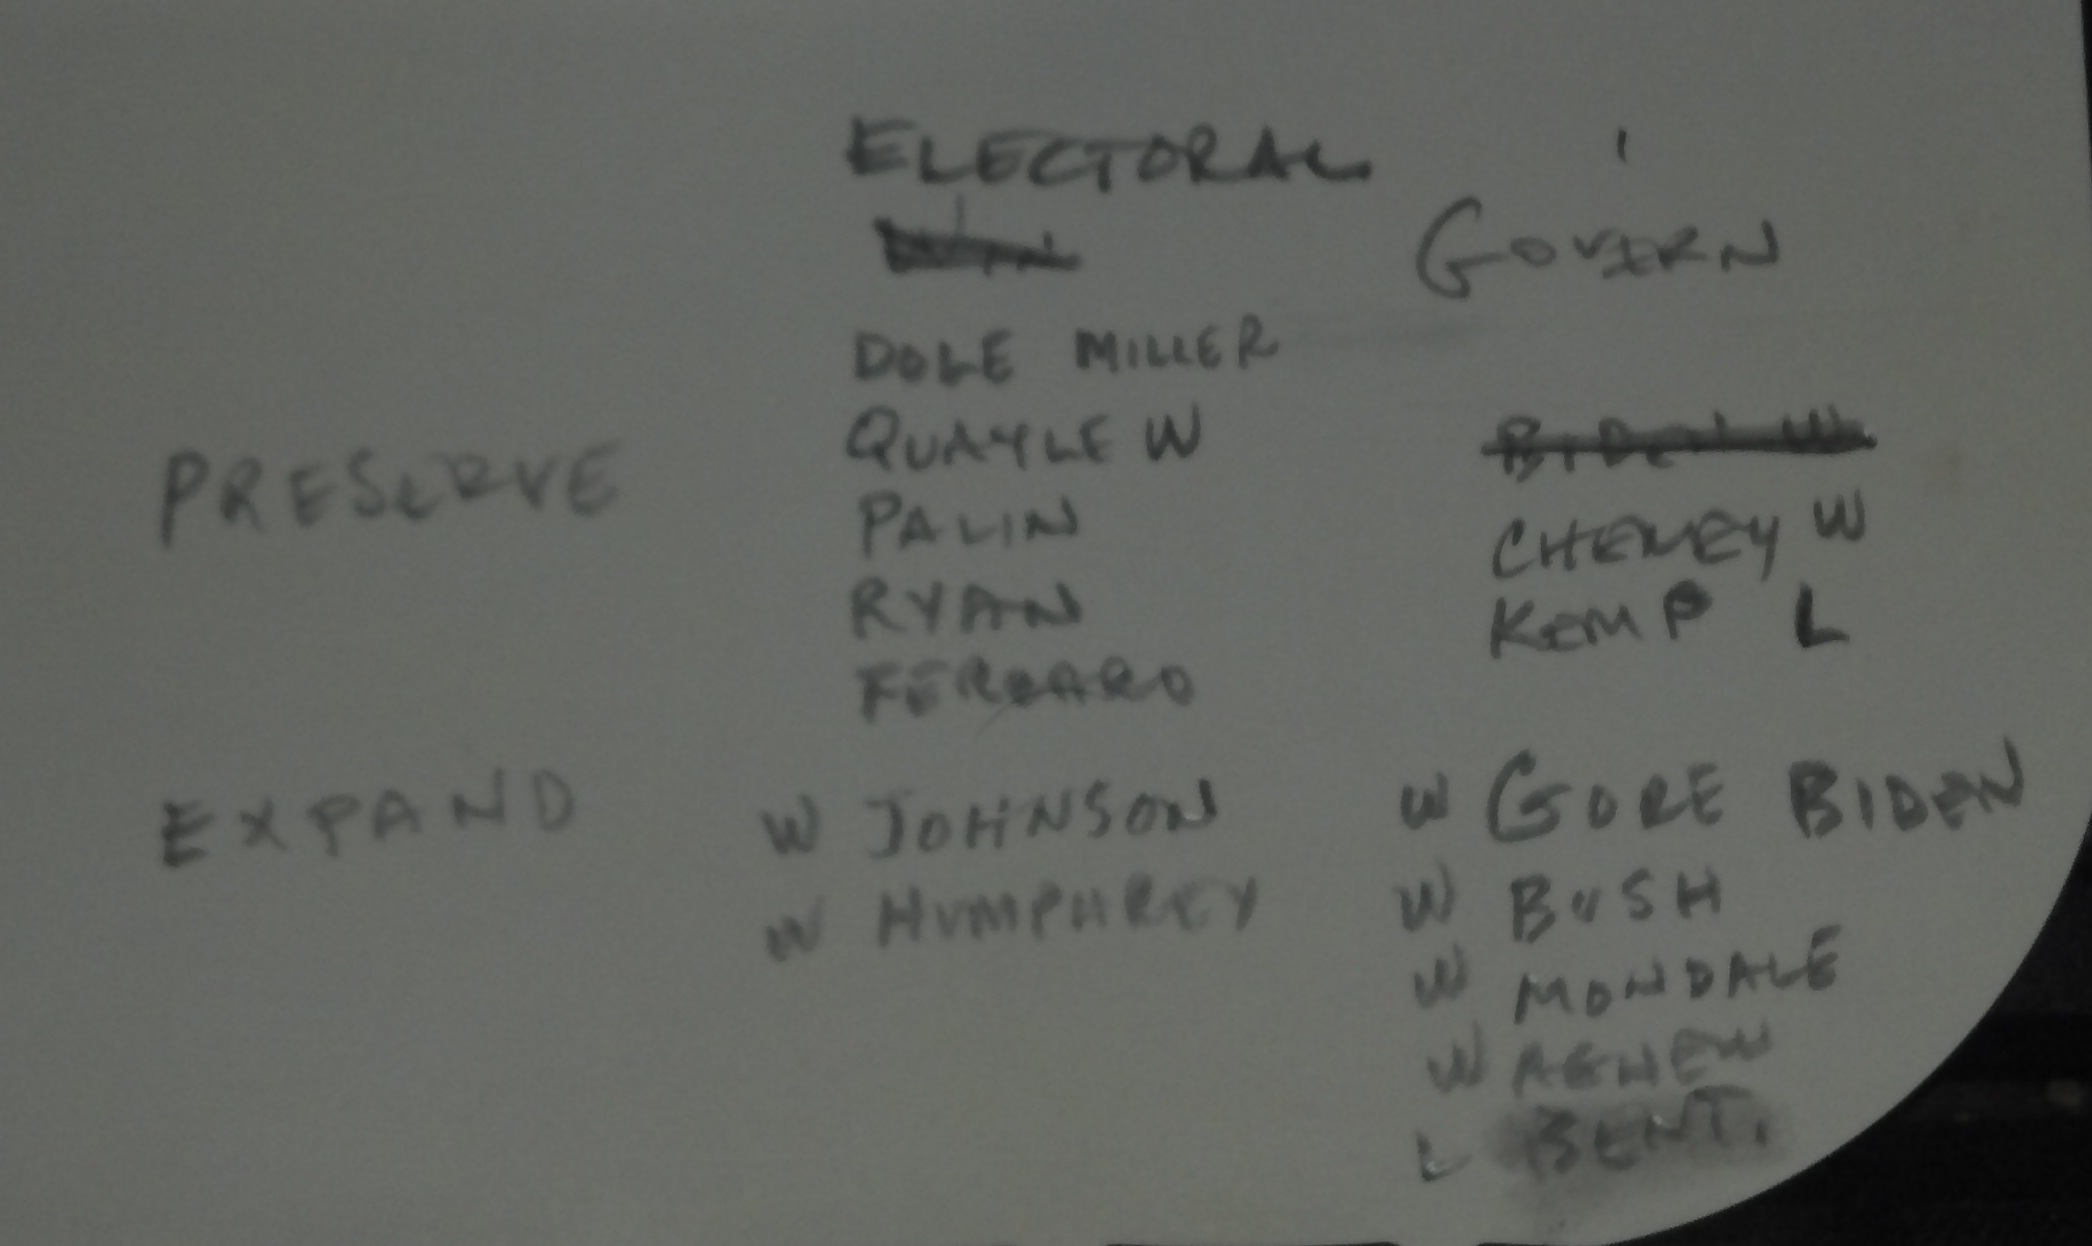 ELECTORAL
GOVERN
DOLE MILLER
QUAYLE W
PRESERVE
PALIN
CHENEY W
RYAN
KEMP L
FERRARO
EXPAND
W JOHNSON W GORE BIDEN
W HUMPHREY W BUSH
W MONDALE
W AGNEW
L BENT.